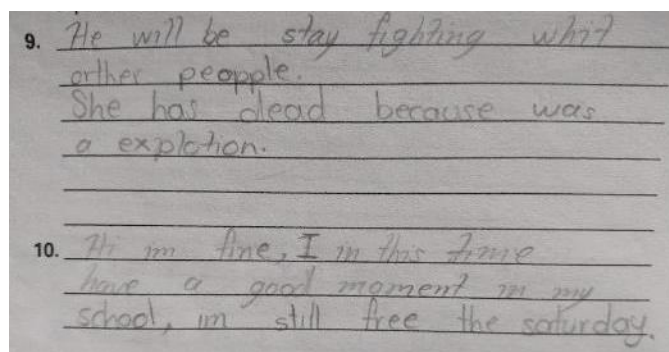 9. He will be stay fighting whit
orther peopple.
She has dead because was
a explotion.
10. Hi im fine, I in this time
have a good moment in my
school, im still free the saturday.